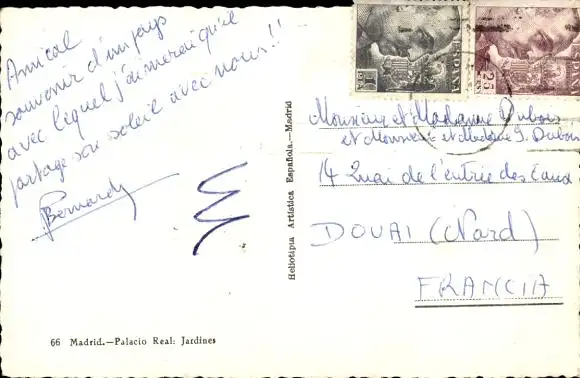 Amical
souvenir d'un pays
avec lequel j'aimerai qu'il
partage son soleil avec nous!!
Bernard
66 Madrid.—Palacio Real: Jardines
Heliotipia Artística Española.—Madrid
ESPAÑA
ESPAÑA
25
Monsieur et Madame Dubois
et Monsieur et Madame J. Dubois
14 Quai de l'entrée des Eaux
DOUAI (Nord)
FRANCIA